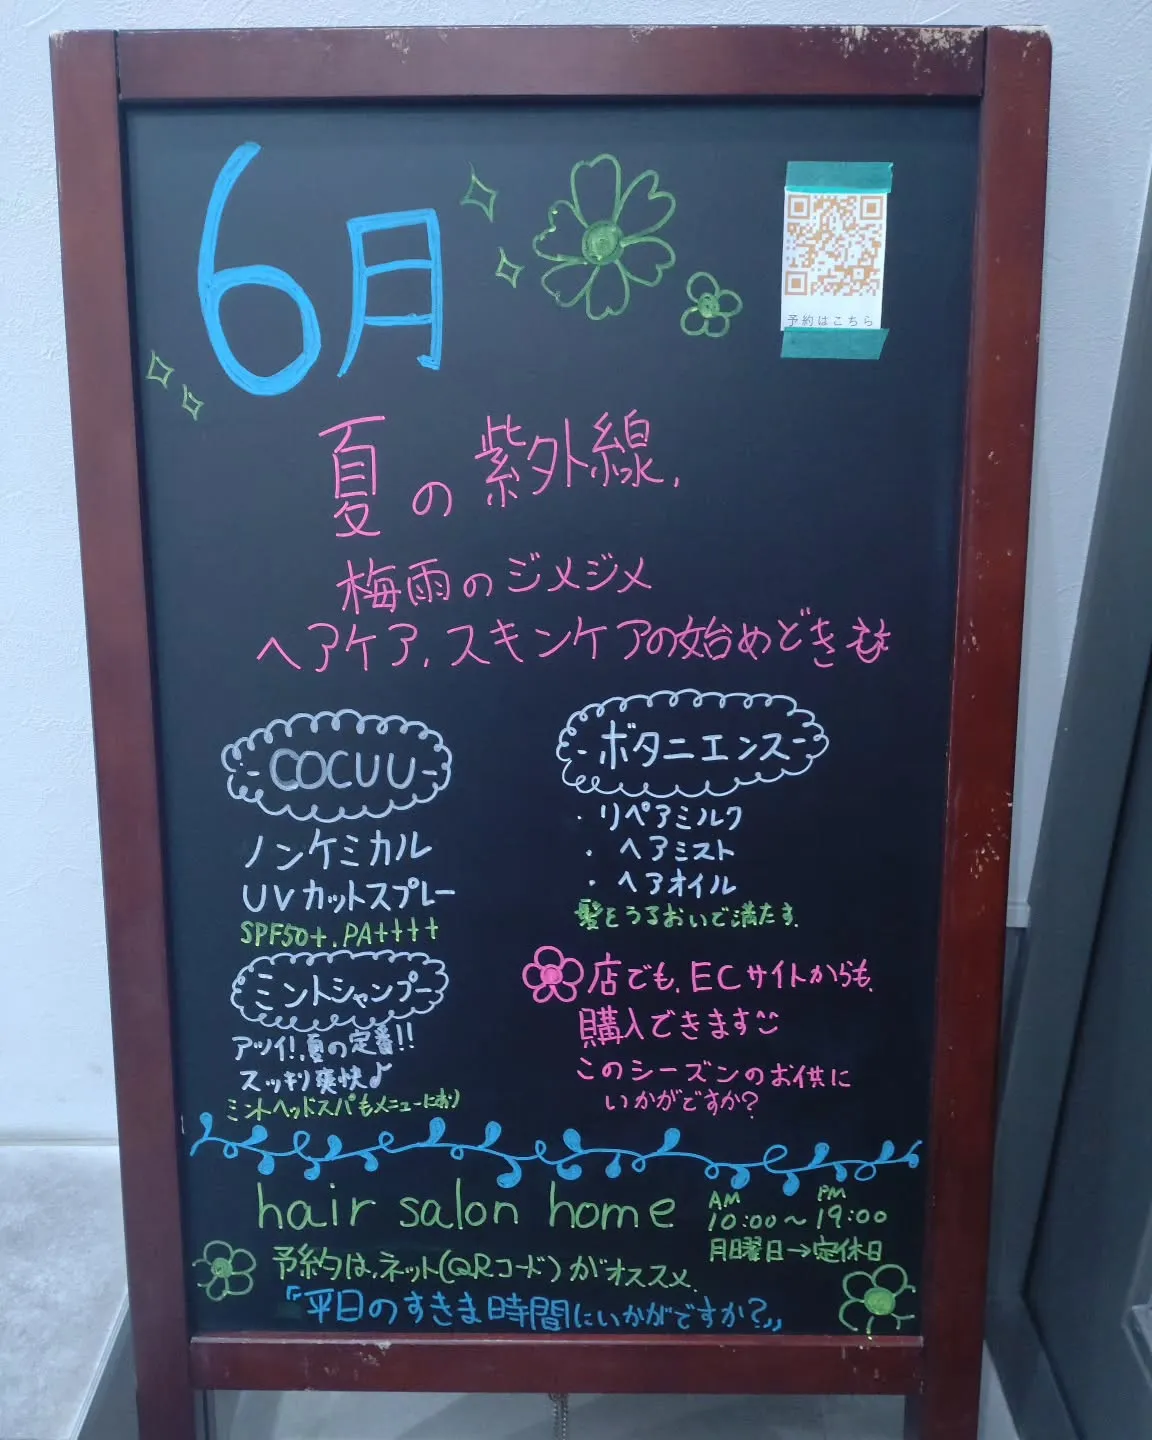 6月
予約はこちら
夏の紫外線、
梅雨のジメジメ
ヘアケア、スキンケアの始めどき
-COCUU-
ノンケミカル
UVカットスプレー
SPF50+.PA++++
ミントシャンプー
アツイ!、夏の定番!!
スッキリ爽快♪
ミントヘッドスパもメニューにあり
-ボタニエンス-
・リペアミルク
・ヘアミスト
・ヘアオイル
髪をうるおいで満たす.
店でも、ECサイトからも、
購入できます^^
このシーズンのお供に
いかがですか?
hair salon home
AM PM
10:00~19:00
月曜日→定休日
予約は、ネット(QRコード)がオススメ.
『平日のすきま時間にいかがですか?』